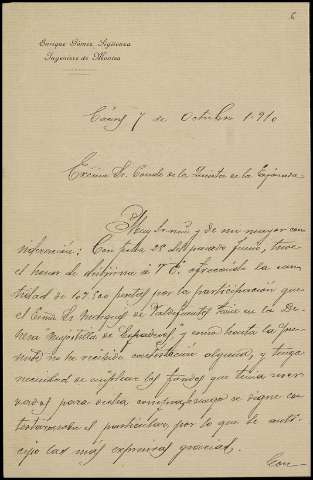 6
Enrique Gómez Sigüenza
Ingeniero de Montes
7 de Octubre 1910
Excmo Sr. Conde de la Quinta de la Enjarada
Muy Sr. mio y de mi mayor con
sideracion: Con fecha 28 del pasado Junio, tuve
el honor de dirigirme a V. E. ofreciendole la can
tidad de ptas por la participación que
el Excmo Sr. Marques de Valdefuentes tiene en la De
hesa de y como hasta la pre
sente no he recibido contestación alguna, y tenga
necesidad de emplear los fondos que tenia reser
vados para dicha compra, ruego se digne con
testarme sobre el particular, por lo que le anti
cipo las más expresivas gracias.
Con